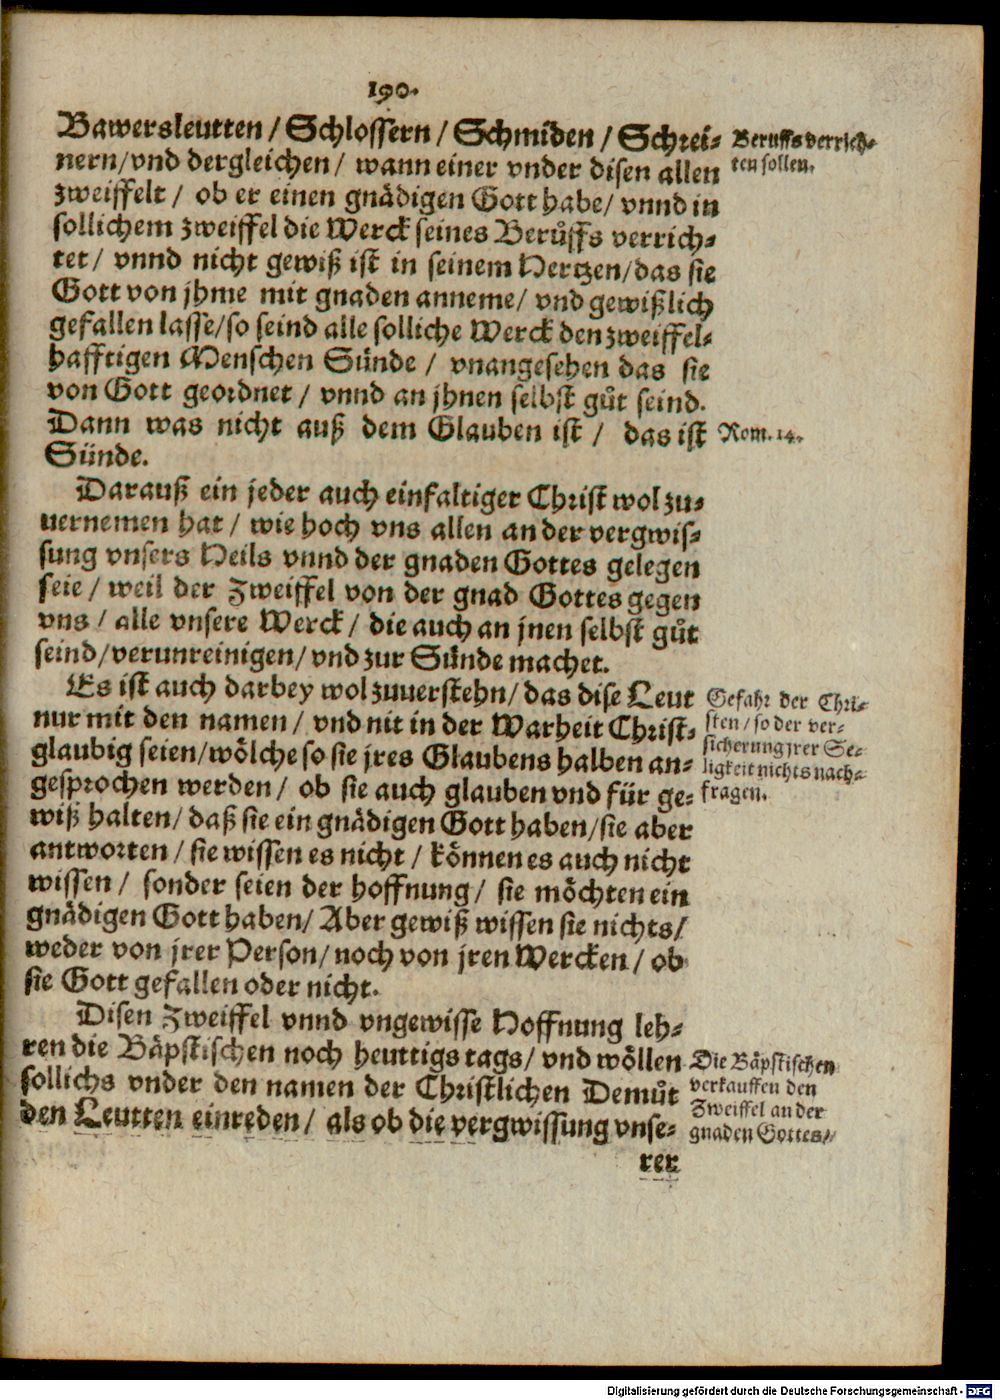 190.
Bawersleutten / Schlossern / Schmiden / Schrei-
nern/ vnd dergleichen / wann einer vnder disen allen
zweiffelt / ob er einen gnädigen Gott habe/ vnnd in
sollichem zweiffel die Werck seines Berůffs verrich-
tet / vnnd nicht gewiß ist in seinem Hertzen/ das sie
Gott von jhme mit gnaden anneme/ vnd gewißlich
gefallen lasse/ so seind alle solliche Werck den zweiffel-
hafftigen Menschen Sünde / vnangesehen das sie
von Gott geordnet / vnnd an jhnen selbst gůt seind.
Dann was nicht auß dem Glauben ist / das ist
Sünde.
Berůffs verrich-
ten sollen.
Rom. 14.
Darauß ein jeder auch einfaltiger Christ wol zu-
uernemen hat / wie hoch vns allen an der vergwis-
sung vnsers Heils vnnd der gnaden Gottes gelegen
seie / weil der Zweiffel von der gnad Gottes gegen
vns / alle vnsere Werck / die auch an jnen selbst gůt
seind/ verunreinigen/ vnd zur Sünde machet.
Es ist auch darbey wol zuuerstehn/ das dise Leut
nur mit den namen / vnd nit in der Warheit Christ-
glaubig seien/ wölche so sie jres Glaubens halben an-
gesprochen werden / ob sie auch glauben vnd für ge-
wiß halten/ daß sie ein gnädigen Gott haben/ sie aber
antworten / sie wissen es nicht / können es auch nicht
wissen / sonder seien der hoffnung / sie möchten ein
gnädigen Gott haben/ Aber gewiß wissen sie nichts/
weder von jrer Person/ noch von jren Wercken / ob
sie Gott gefallen oder nicht.
Gefahr der Chri-
sten / so der ver-
sicherung jrer Se-
ligkeit nichts nach-
fragen.
Disen Zweiffel vnnd vngewisse Hoffnung leh-
ren die Bäpstischen noch heuttigs tags/ vnd wöllen
sollichs vnder den namen der Christlichen Demůt
den Leutten einreden / als ob die vergwissung vnse-
rer
Die Bäpstischen
verkauffen den
Zweiffel an der
gnaden Gottes/
Digitalisierung gefördert durch die Deutsche Forschungsgemeinschaft - DFG